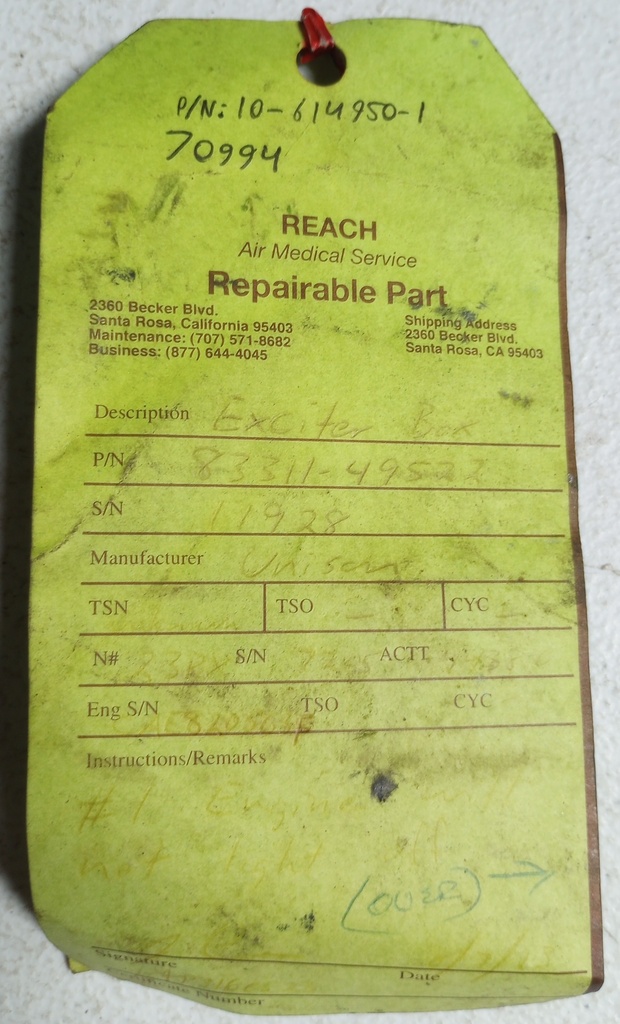 P/N: 10-614950-1
70994
REACH
Air Medical Service
Repairable Part
2360 Becker Blvd.
Santa Rosa, California 95403
Maintenance: (707) 571-8682
Business: (877) 644-4045
Shipping Address
2360 Becker Blvd.
Santa Rosa, CA 95403
Description Exciter Box
P/N 83311-49522
S/N 11928
Manufacturer
TSN TSO CYC
N# S/N ACTT
Eng S/N TSO CYC
Instructions/Remarks
#1 Engine will
not light off
(OVER) →
Signature Date
Certificate Number